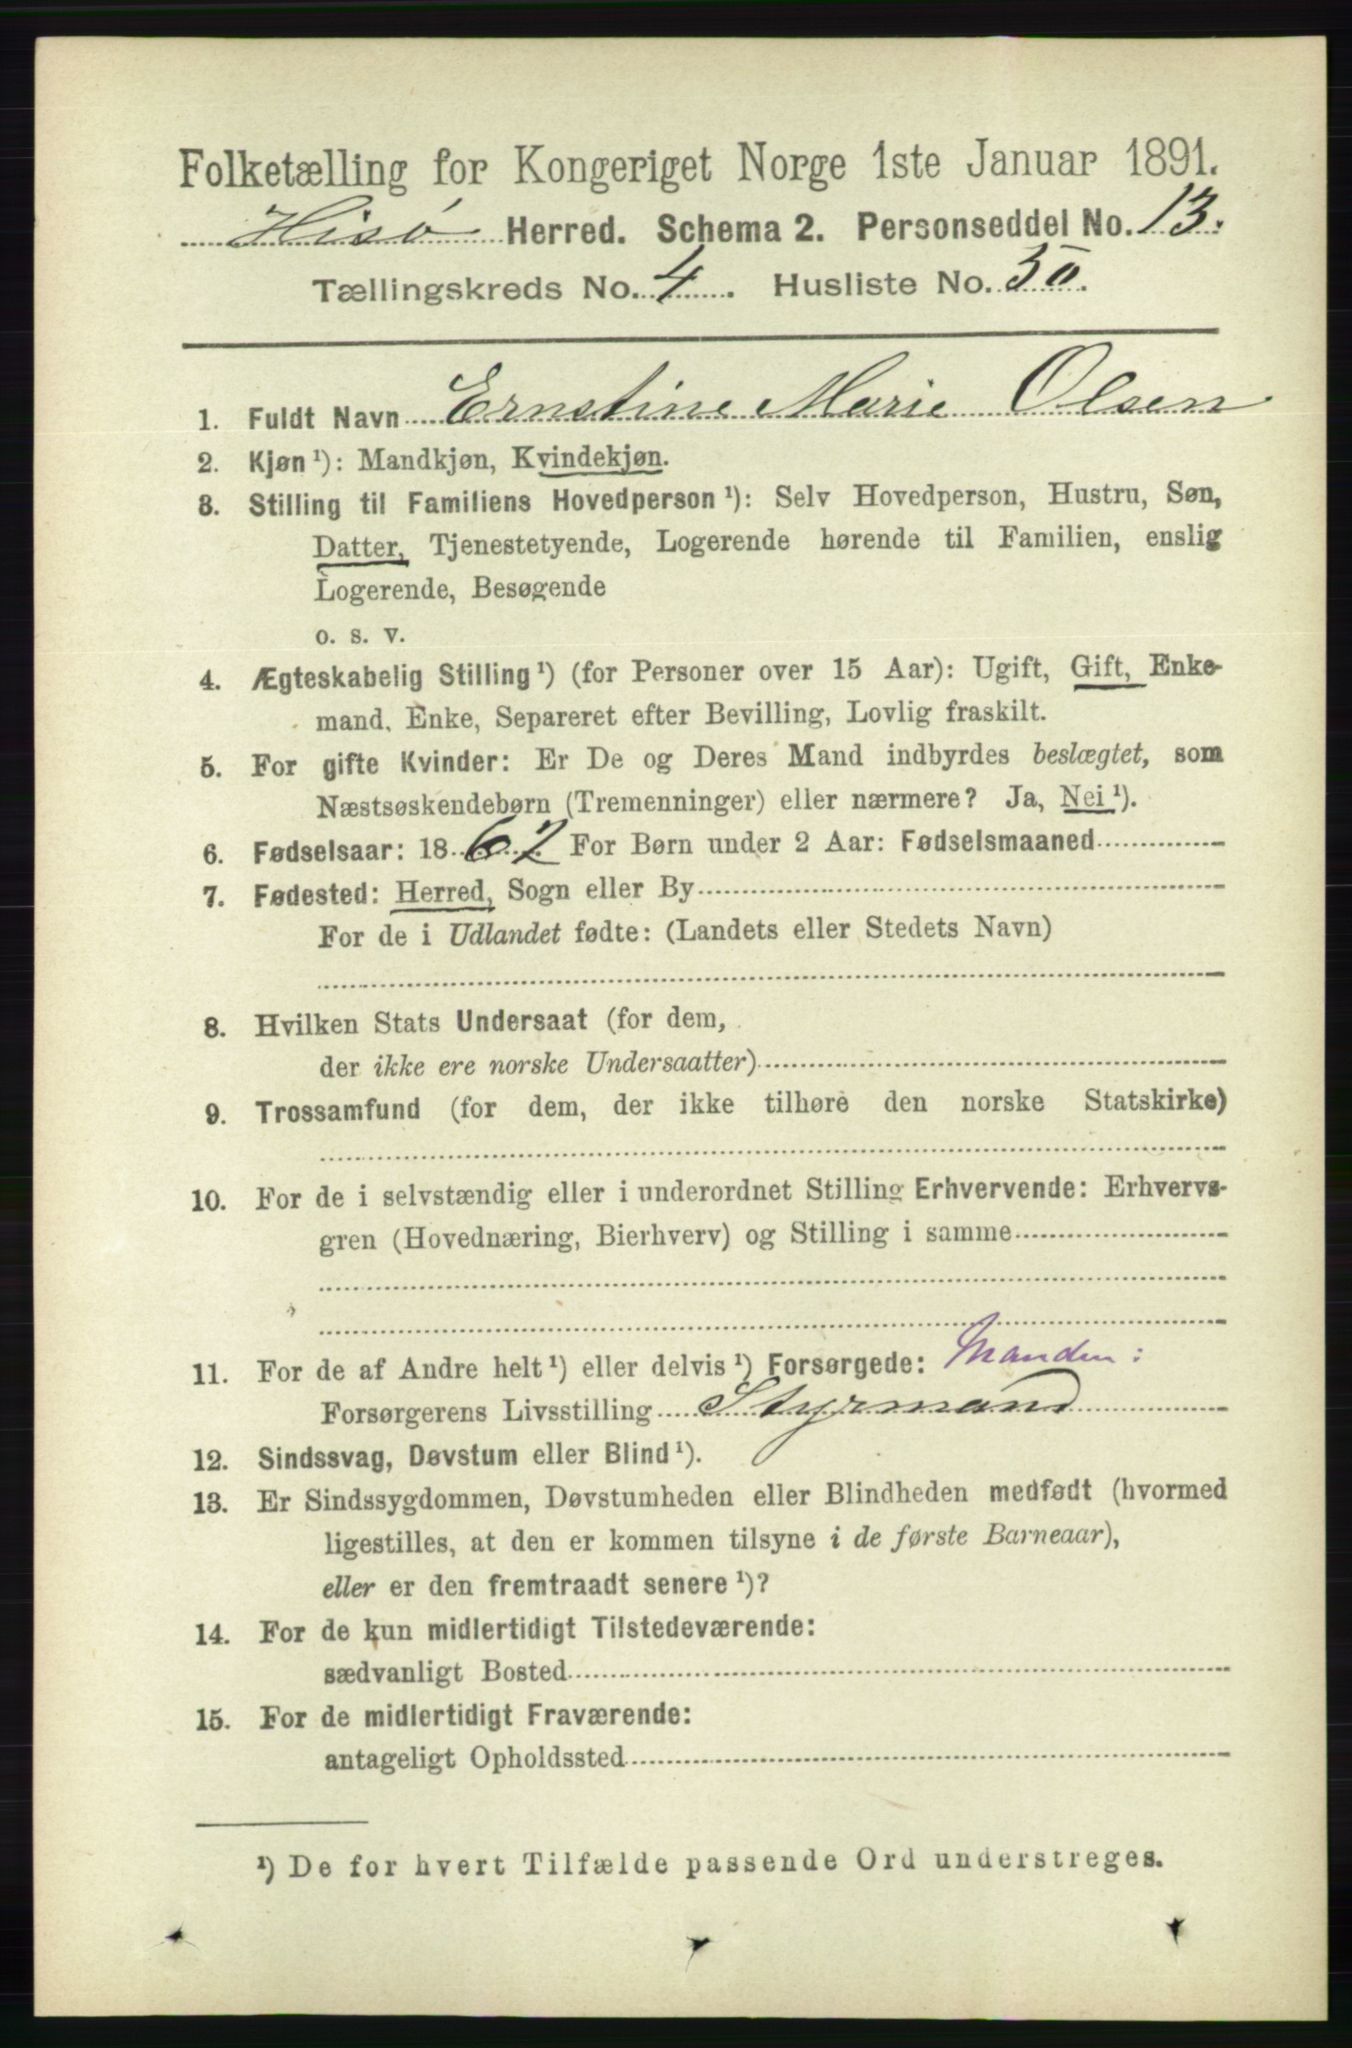 Folketælling for Kongeriget Norge 1ste Januar 1891.
Hisø Herred. Schema 2. Personseddel No. 13.
Tællingskreds No. 4. Husliste No. 30.
1. Fuldt Navn Ernstine Marie Olsen
2. Kjøn¹): Mandkjøn, Kvindekjøn.
3. Stilling til Familiens Hovedperson¹): Selv Hovedperson, Hustru, Søn,
Datter, Tjenestetyende, Logerende hørende til Familien, enslig
Logerende, Besøgende
o. s. v.
4. Ægteskabelig Stilling¹) (for Personer over 15 Aar): Ugift, Gift, Enke-
mand, Enke, Separeret efter Bevilling, Lovlig fraskilt.
5. For gifte Kvinder: Er De og Deres Mand indbyrdes beslægtet, som
Næstsøskendebørn (Tremenninger) eller nærmere? Ja, Nei¹).
6. Fødselsaar: 1862. For Børn under 2 Aar: Fødselsmaaned
7. Fødested: Herred, Sogn eller By
For de i Udlandet fødte: (Landets eller Stedets Navn)
8. Hvilken Stats Undersaat (for dem,
der ikke ere norske Undersaatter)
9. Trossamfund (for dem, der ikke tilhøre den norske Statskirke)
10. For de i selvstændig eller i underordnet Stilling Erhvervende: Erhvervs-
gren (Hovednæring, Bierhverv) og Stilling i samme
11. For de af Andre helt¹) eller delvis¹) Forsørgede: Manden:
Forsørgerens Livsstilling Styrmand
12. Sindssvag, Døvstum eller Blind¹).
13. Er Sindssygdommen, Døvstumheden eller Blindheden medfødt (hvormed
ligestilles, at den er kommen tilsyne i de første Barneaar),
eller er den fremtraadt senere¹)?
14. For de kun midlertidigt Tilstedeværende:
sædvanligt Bosted
15. For de midlertidigt Fraværende:
antageligt Opholdssted
¹) De for hvert Tilfælde passende Ord understreges.